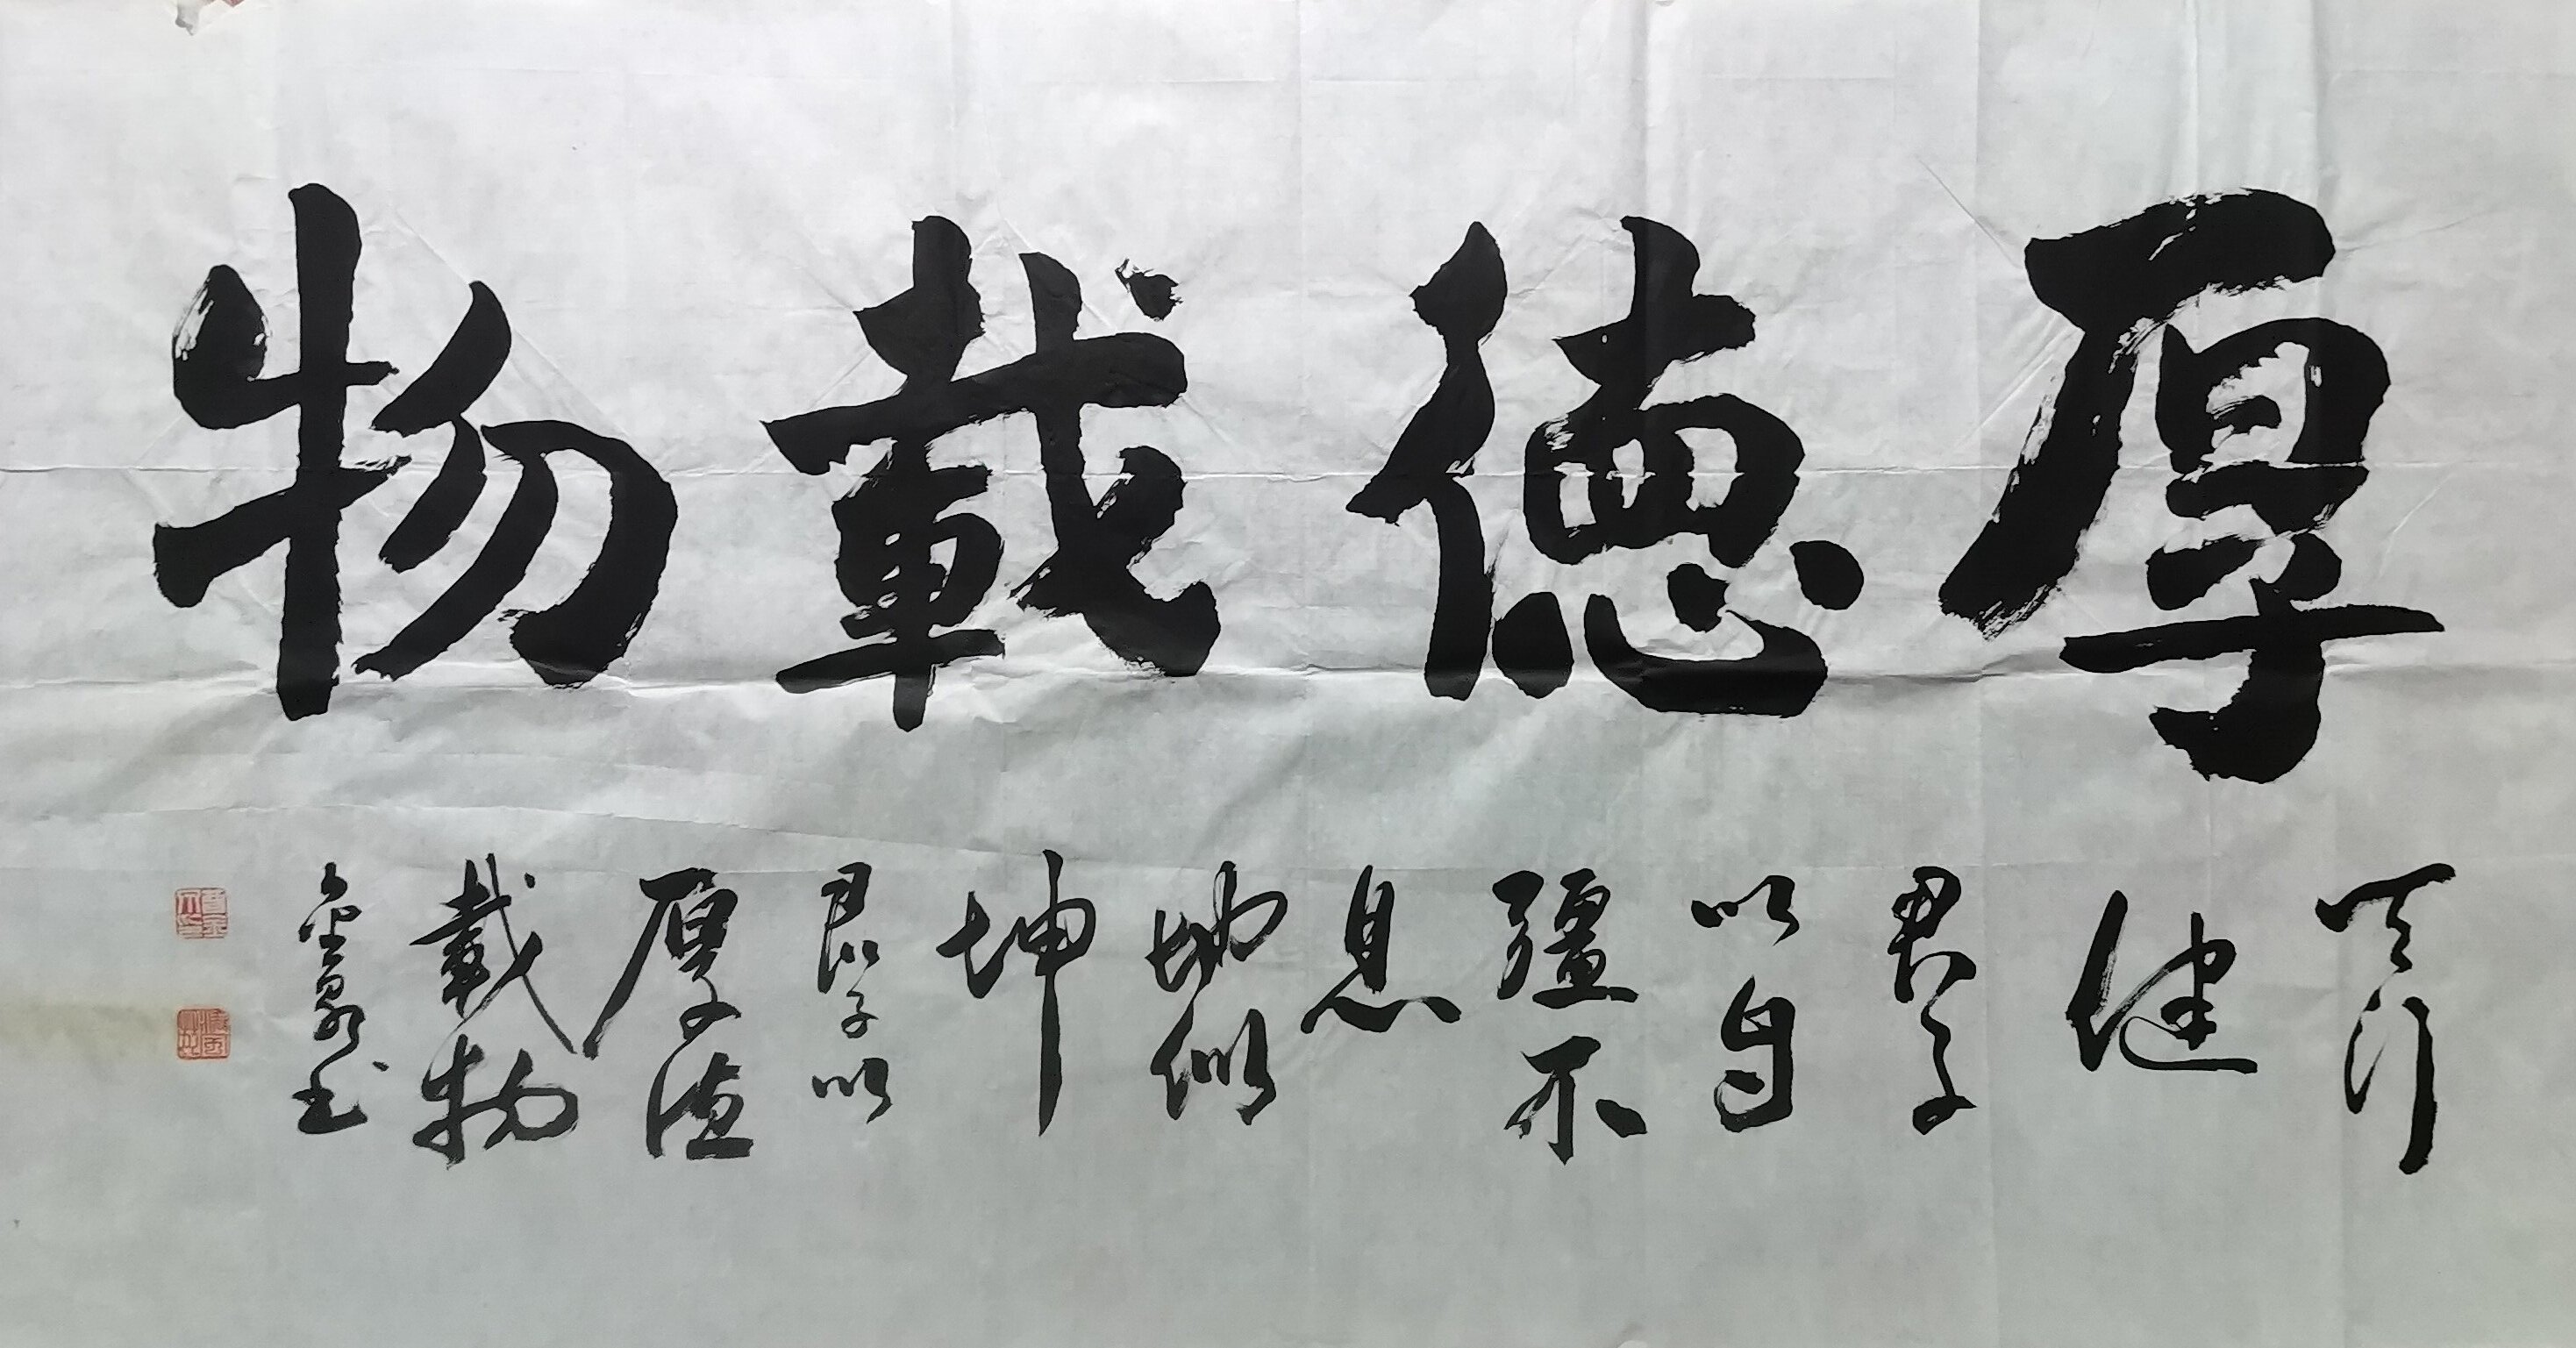 厚德載物
天行
健
君子
以自
彊不
息
地似
坤
君子以
厚德
載物
金泉书